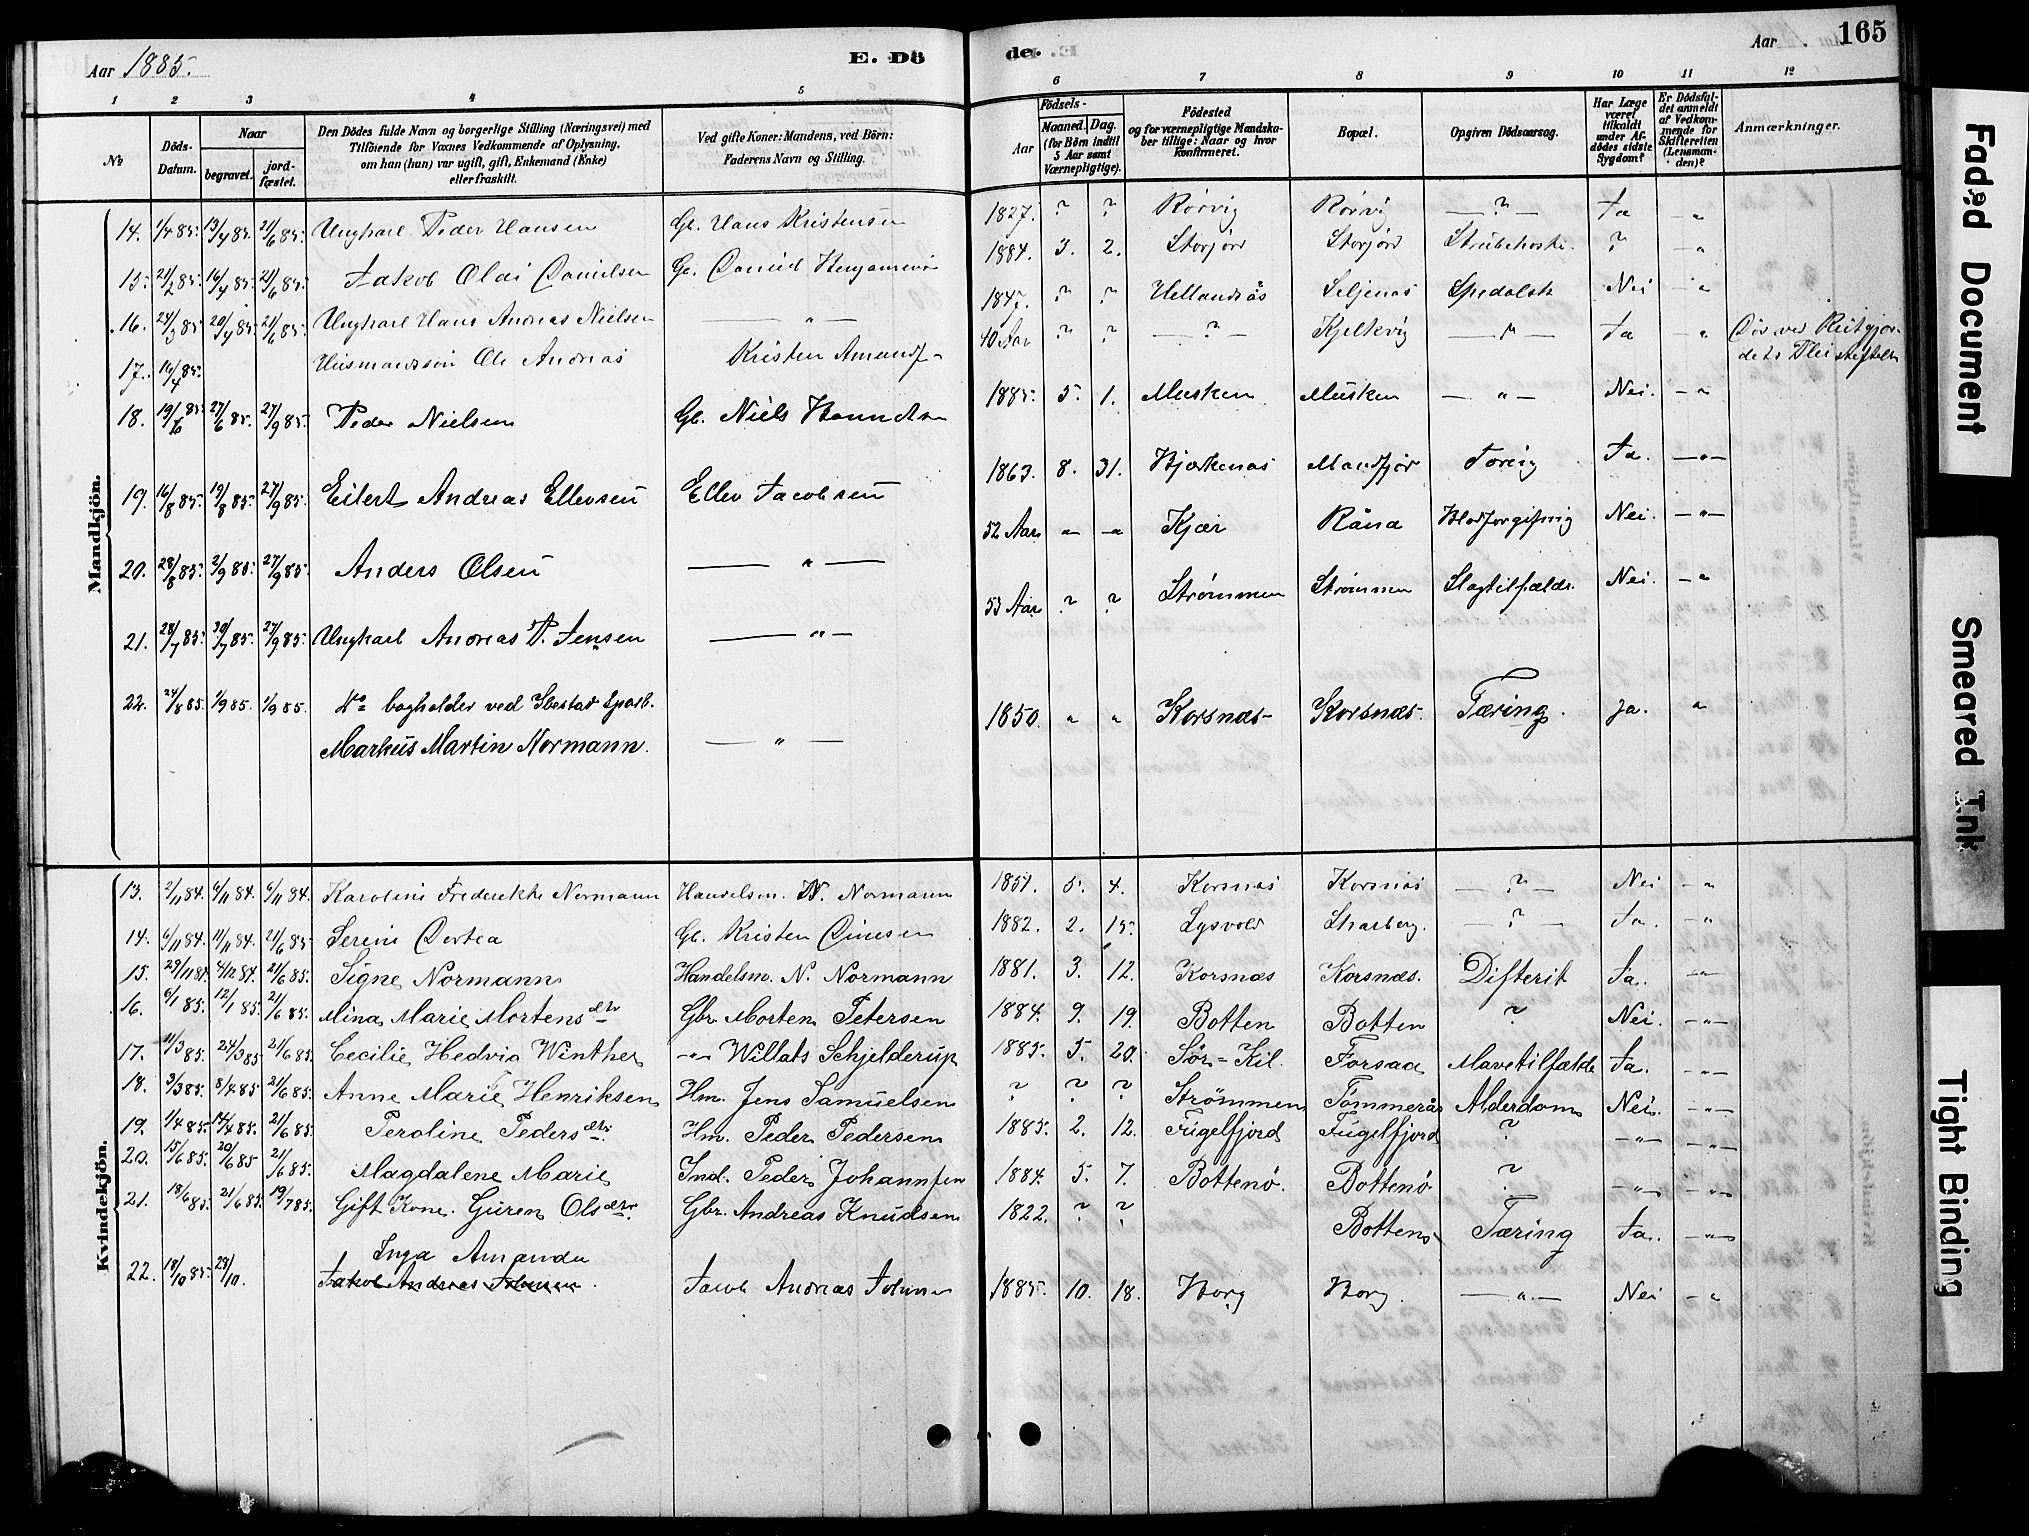 Aar 1885.
E. Dö
de.
Aar
165
1 2 3 4 5 6 7 8 9 10 11 12
No
Döds-Datum.
Naar
begravet.
jord-fæstet.
Den Dödes fulde Navn og borgerlige Stilling (Næringsvei) med
Tilföiende for Voxnes Vedkommende af Oplysning,
om han (hun) var ugift, gift, Enkemand (Enke)
eller fraskilt.
Ved gifte Koner: Mandens, ved Börn:
Faderens Navn og Stilling.
Födsels-
Aar
Maaned. Dag.
(for Börn indtil
5 Aar samt
Værnepligtige).
Födested
og for værnepligtige Mandska-
ber tillige: Naar og hvor
Konfirmeret.
Bopæl.
Opgiven Dödsaarsag.
Har Læge
været
tilkaldt
under Af-
dödes sidste
Sygdom?
Er Dödsfal-
det anmeldt
af Vedkom-
mende for
Skifteretten
(Lensman-
den)?
Anmærkninger.
Mandkjön.
14. 1/4 85. 13/4 85. 21/6 85. Ungkarl Peder Hansen Gb. Hans Kristensen 1827. ? ? Rørvig Rørvig —?— Ja - "
15. 21/2 85. 16/4 85. 21/6 85. Jakob Olai Danielsen Gb. Daniel Benjaminsen 1884. 3. 2. Storjord Storjord Strubehoste ? - "
16. 24/3 85 20/4 85 21/6 85. Ungkarl Hans Andreas Nielsen — " — 1847. ? ? Hellandsås Seljenas Spedalsk Nei - "
17. 16/4 85. Husmandssøn Ole Andreas Kristen Amunds- 40 Aar ? ? —?— Kjelkvig — " — Ja "
18. 19/6 85. 27/6 85. 27/9 85. Peder Nielsen Gb. Niels 1885. 5. 1. Musken Musken — " — Nei. - "
19. 16/8 85. 19/8 85. 27/9 85. Eilert Andreas Ellevsen Ellev Jacobsen 1863. 8. 31. Bjerkenas Tæring Ja. — " —
20. 28/8 85. 3/9 85. 27/9 85. Anders Olsen — " — 52 Aar - " - " Kjær Råna Blodforgiftnig Nei. — " —
21. 28/7 85. 30/7 85. 27/9 85. Ungkarl Andreas P. Jensen — " — 53 Aar ? ? Strømmen Strømmen Slagtilfælde Nei. - "
22. 24/8 85. 1/9 85. 1/9 85. Do bogholder ved Ibestad Sparb.
Markus Martin Normann. — " — 1850. " " Korsnæs- Korsnæs. Tæring. Ja. "
Kvindekjön.
13. 2/11 84. 6/11 84. 6/11 84. Karoline Frederikke Normann Handelsm. N. Normann 1851. 5. 4. Korsnæs Korsnæs —?— Nei - "
14. 6/11 84. 11/11 84. 21/6 85 Serine Dortea Gb. Kristen Dinesen 1882. 2. 15. Lysvold Skarberg. —?— Ja. - "
15. 29/11 84. 4/12 84. 21/6 85. Signe Normann Handelsm. N. Normann 1881. 3. 12. Korsnæs Korsnæs. Difterit Ja. — " —
16. 6/1 85. 12/1 85. 21/6 85. Mina Marie Mortensdtr Gbr. Morten Petersen 1884. 9. 19. Botten Botten ? Nei. — " —
17. 11/3 85. 24/3 85 21/6 85. Cecilie Hedvig Winther - " - Willats Schjelderup 1885. 5. 20. Sør-Kil. Forsaa Mavetilfælde Ja. — " —
18. 3/3 85. 8/4 85 21/6 85. Anne Marie Henriksen Hm. Jens Samuelsen ? ? ? Strömmen Tömmerås Alderdom Nei. — " —
19. 1/4 85. 14/4 85. 21/6 85. Peroline Pedersdtr. Hm. Peder Pedersen 1885. 2. 12. Fugelfjord Fugelfjord ? — " — — " —
20. 15/6 85. 20/6 85 21/6 85. Magdalene Marie Ind. Peder Johannsen 1884. 5. 7. Bottenö. Bottenö. ? — " — — " —
21. 18/6 85. 21/6 85. 19/7 85. Gift Kone. Guren Olsdtr. Gbr. Andreas Knudsen 1822. ? ? Botten Tæring Ja. — " —
Inga Amanda
22. 18/10 85. 28/10. Jakob Andreas Johnsen. Jacob Andreas Johnsen 1885. 10. 18. Borg Borg. — " — Nei - "
Faded Document
Smeared Ink
Tight Binding